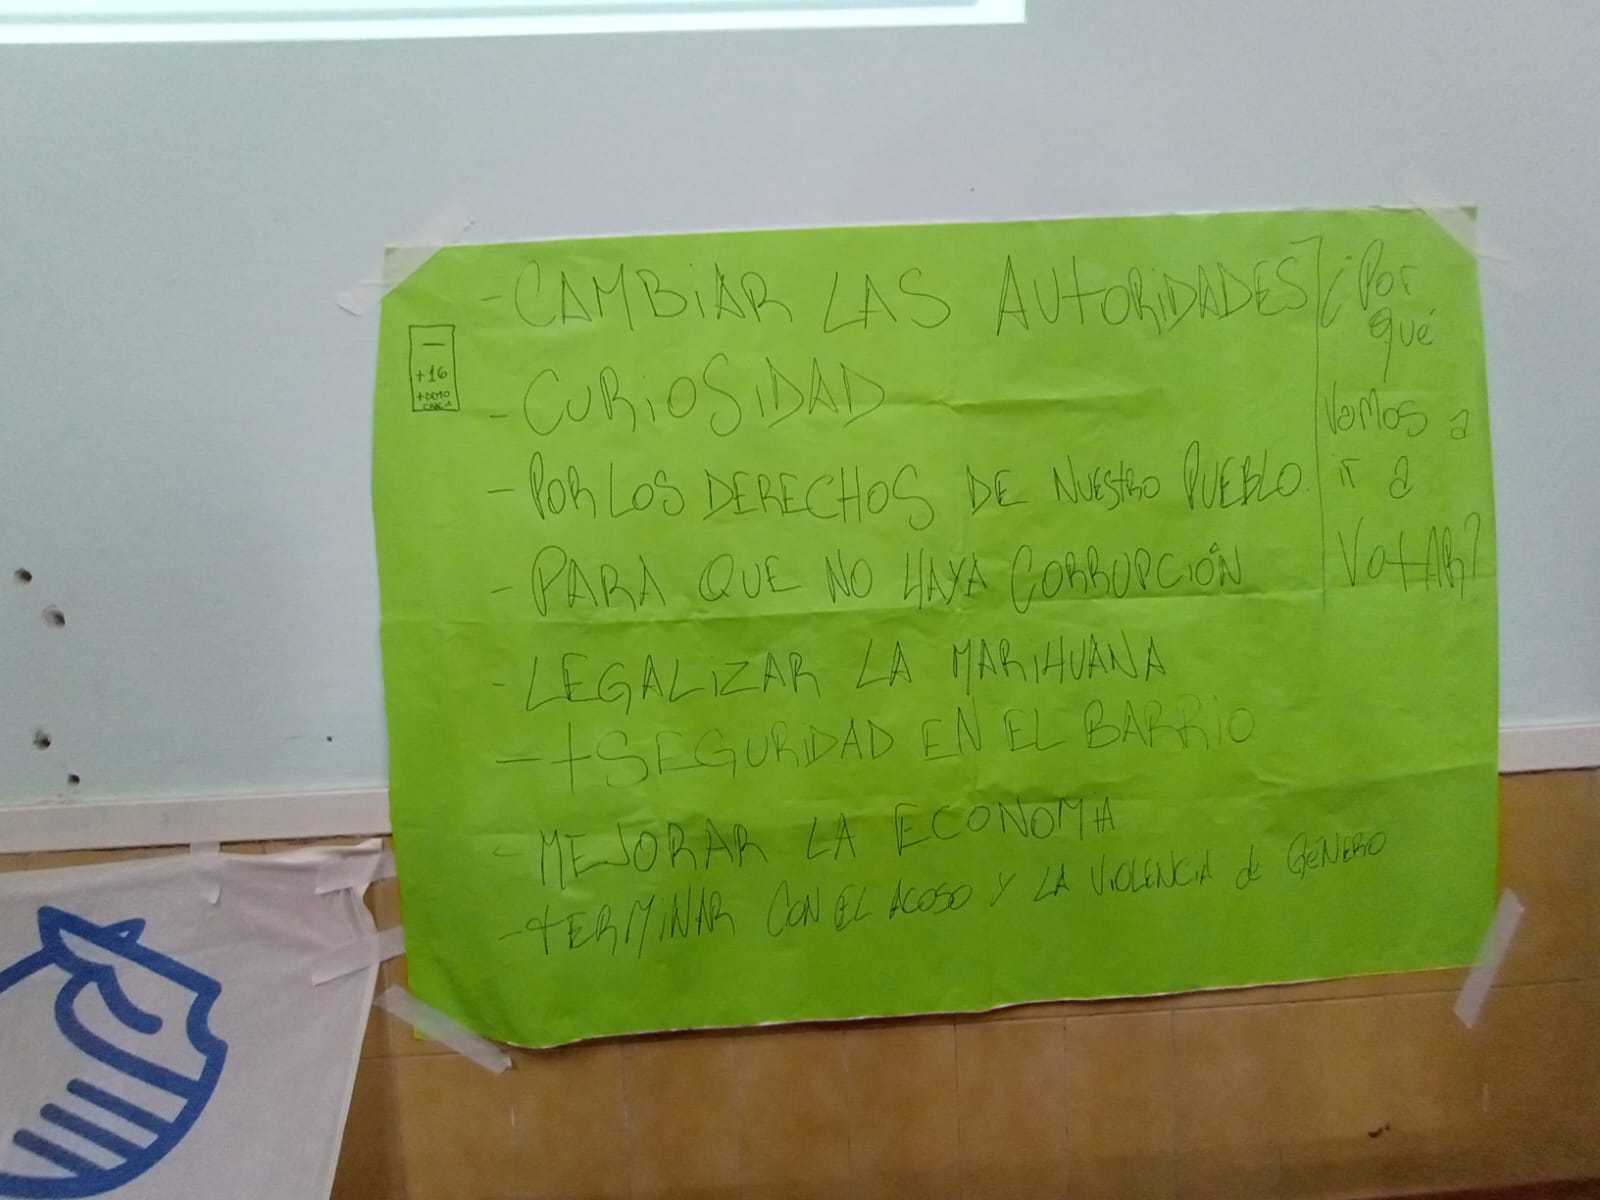 - CAMBIAR LAS AUTORIDADES
- CURIOSIDAD
- POR LOS DERECHOS DE NUESTRO PUEBLO
- PARA QUE NO HAYA CORRUPCIÓN
- LEGALIZAR LA MARIHUANA
- + SEGURIDAD EN EL BARRIO
- MEJORAR LA ECONOMIA
- TERMINAR CON EL ACOSO Y LA VIOLENCIA de GÉNERO
¿Por
qué
Vamos a
ir a
VotAR?
+16
+DEMO
CRACIA